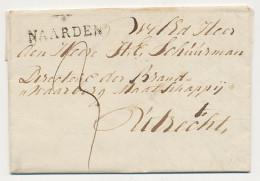 NAARDEN
Den Heere H.E. Schuurman
Directeur der Brand
Waarborg Maatschappij
te
Utrecht,